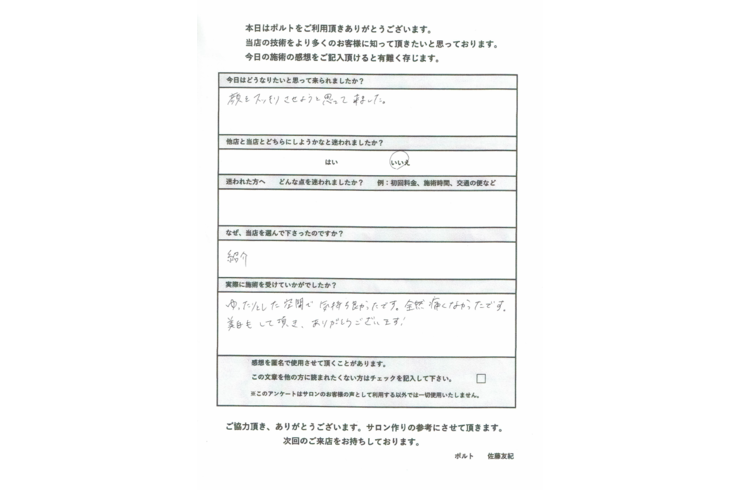 本日はポルトをご利用頂きありがとうございます。
当店の技術をより多くのお客様に知って頂きたいと思っております。
今日の施術の感想をご記入頂けると有難く存じます。
今日はどうなりたいと思って来られましたか?
顔をスッキリさせようと思って来ました。
他店と当店とどちらにしようかなと迷われましたか?
はい いいえ
迷われた方へ どんな点を迷われましたか? 例:初回料金、施術時間、交通の便など
なぜ、当店を選んで下さったのですか?
紹介
実際に施術を受けていかがでしたか?
ゆったりとした空間で気持ち良かったです。全然痛くなかったです。
美白もして頂き、ありがとうございます!
感想を匿名で使用させて頂くことがあります。
この文章を他の方に読まれたくない方はチェックを記入して下さい。
※このアンケートはサロンのお客様の声として利用する以外では一切使用いたしません。
ご協力頂き、ありがとうございます。サロン作りの参考にさせて頂きます。
次回のご来店をお待ちしております。
ポルト 佐藤友紀